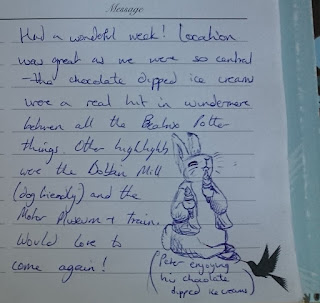 Message
Had a wonderful week! Location
was great as we were so central
- the chocolate dipped ice creams
were a real hit in windermere
between all the Beatrix Potter
things. Other highlights
were the Mill
(dog friendly) and the
Motor Museum + train.
Would love to
come again!
(Peter enjoying
his chocolate
dipped ice creams)